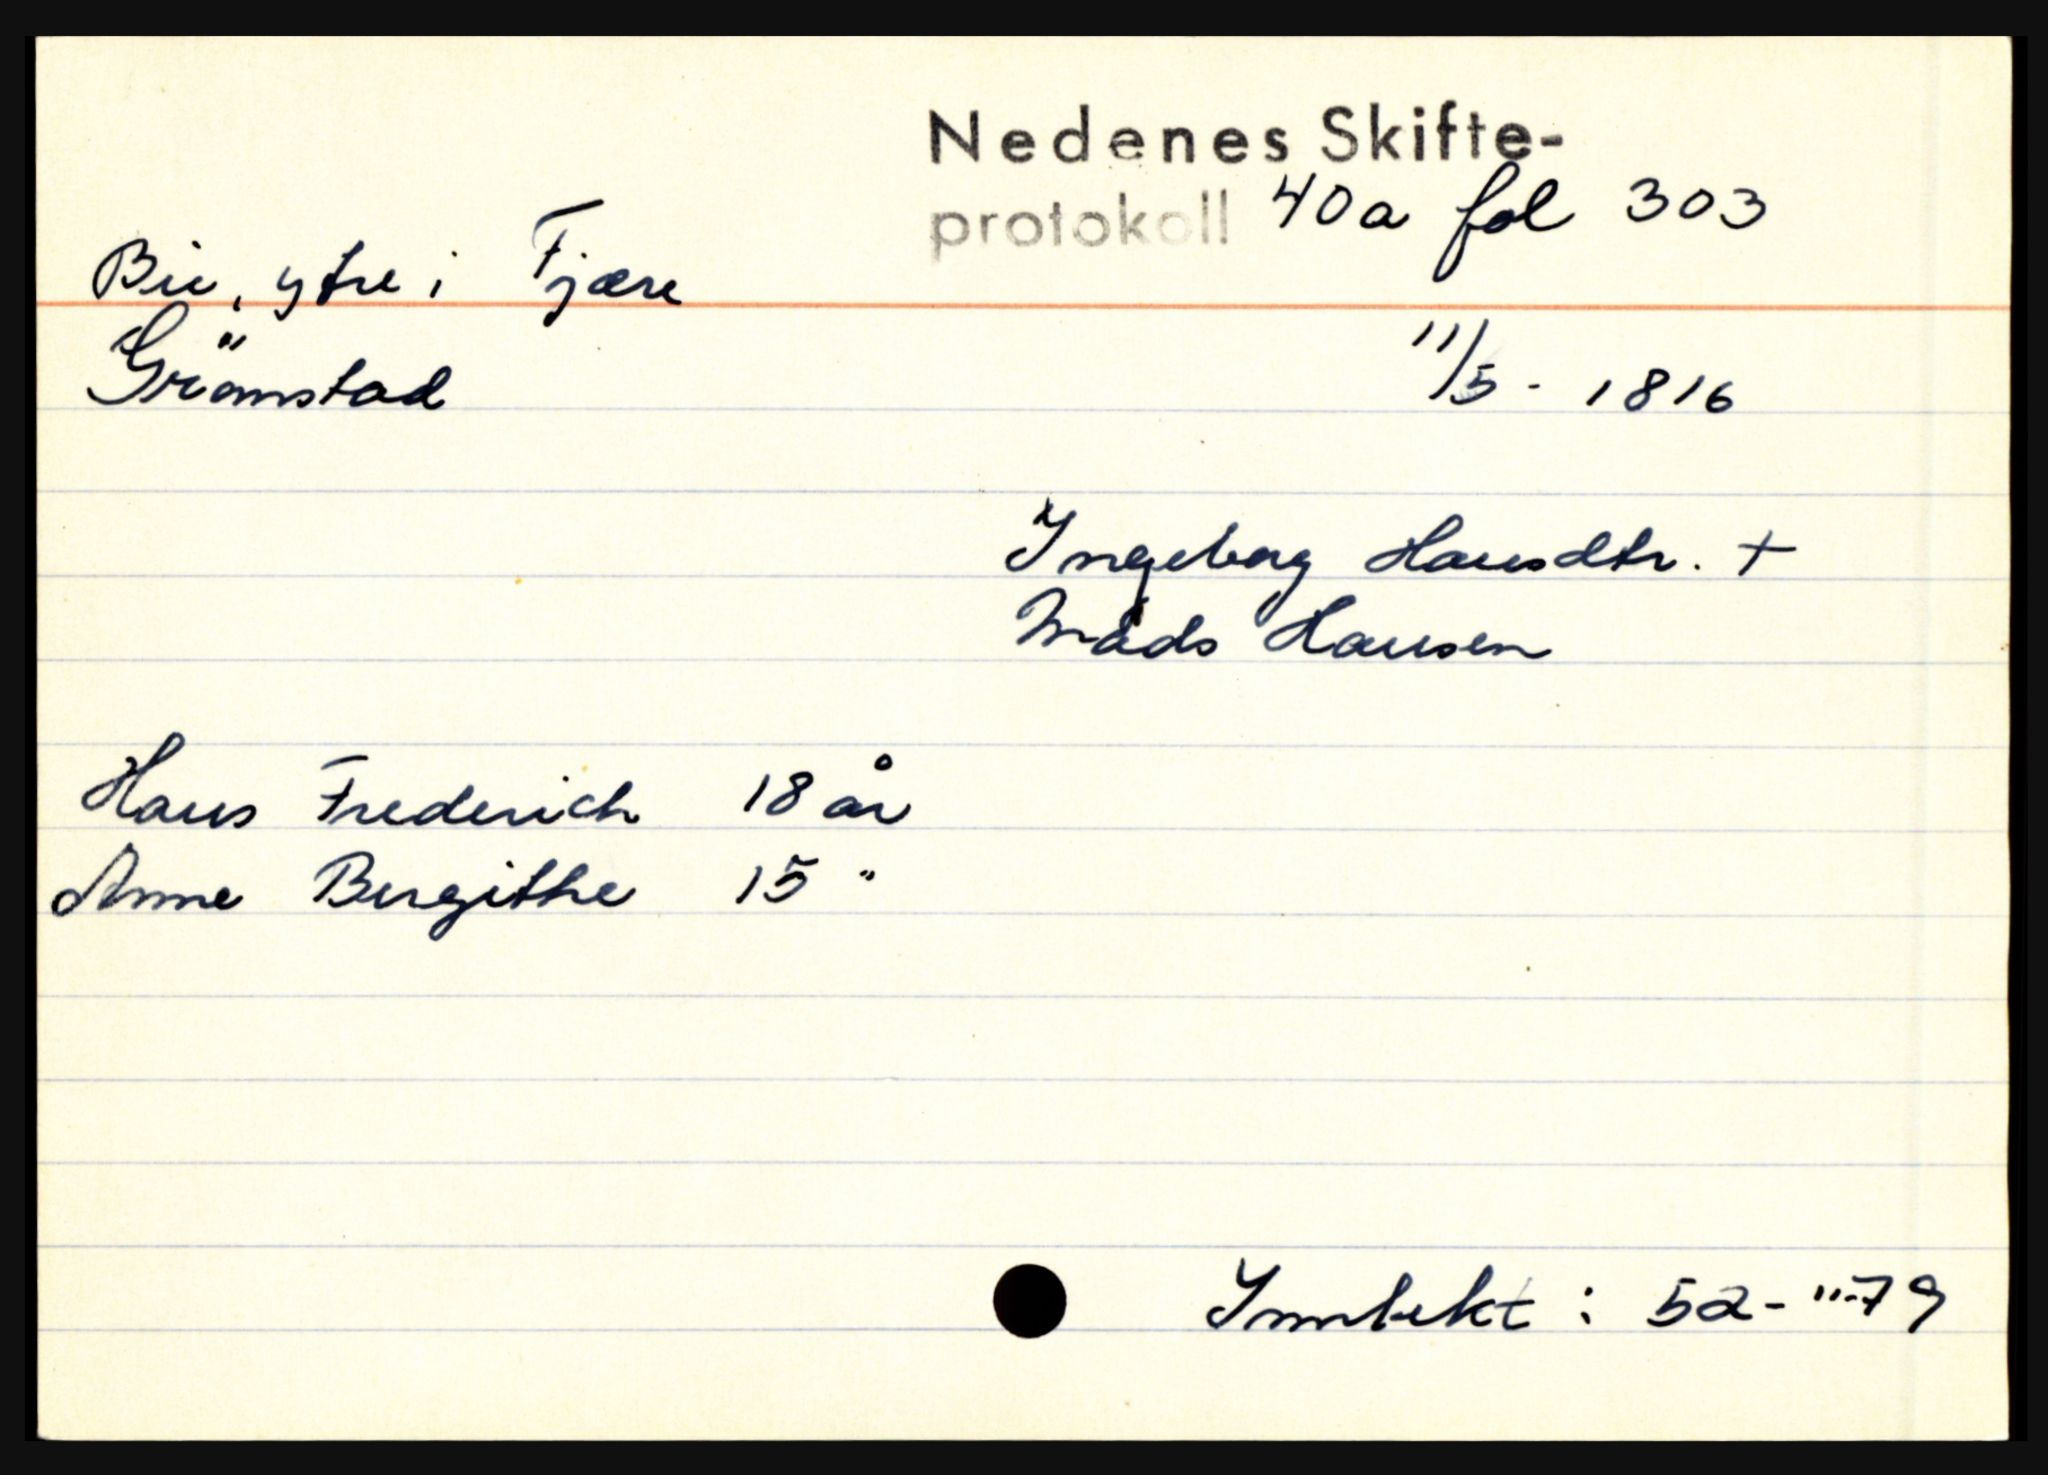 Nedenes Skifte-
protokoll 40a fol 303
Bie, ytre i Fjære
Grömstad
11/5 - 1816
Ingeborg Hansdtr. +
Mads Hansen
Hans Frederich 18 år
Anne Birgithe 15 "
Inntekt : 52-"-79